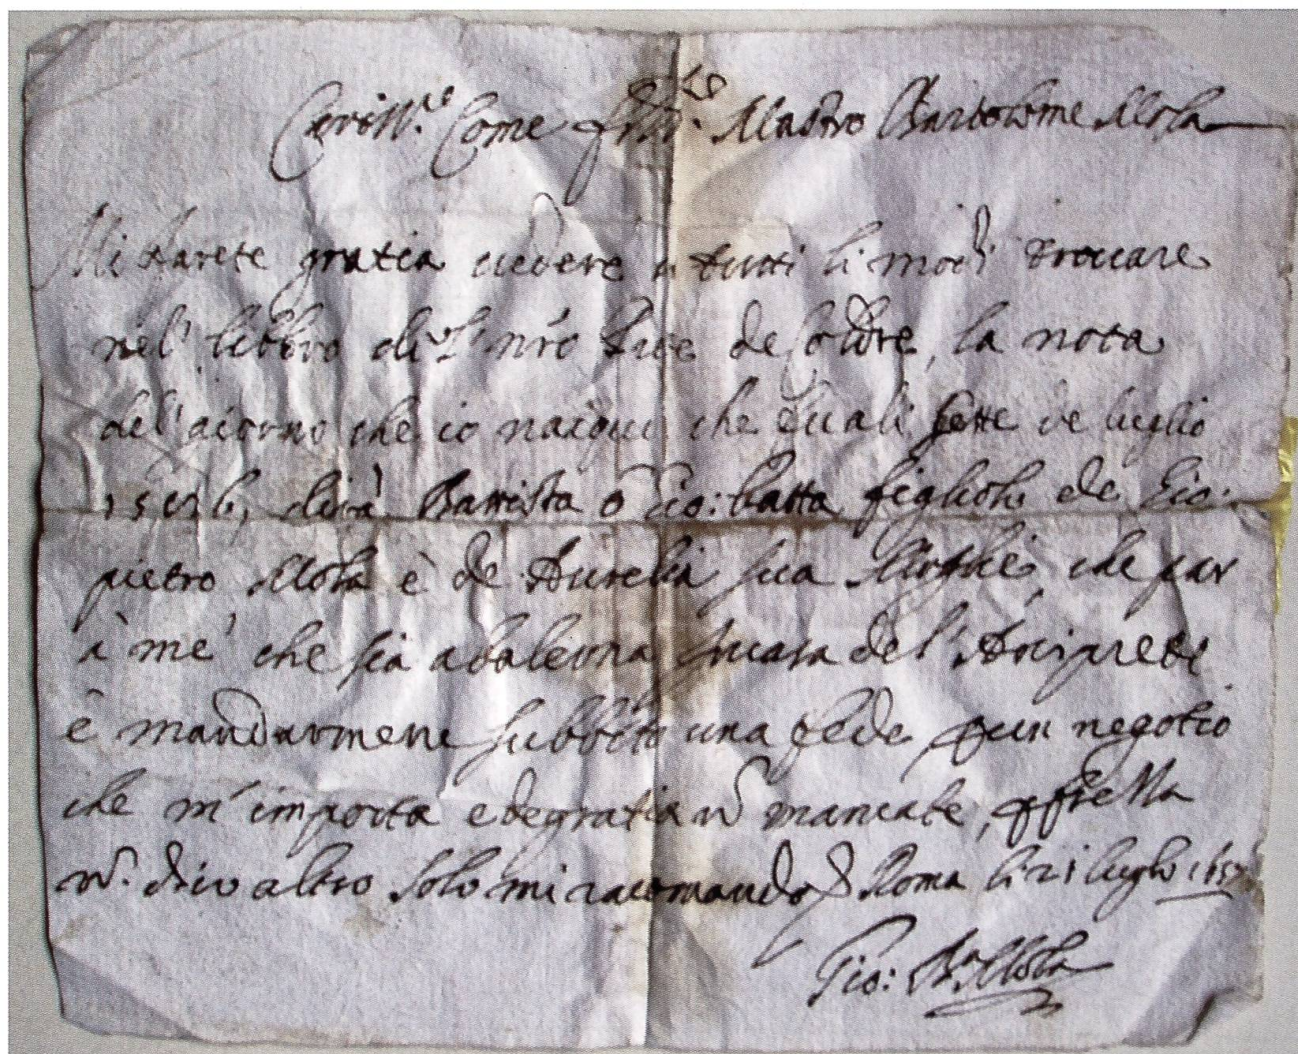 Cariss.re Come fratt.llo Mastro Bartolome Mola
Mi farete gratia vedere in tutti li modi trovare
nel' libbro di nro de Coldre, la nota
del' giorno che io nacqui che fu ali sette de luglio
dirà Battista o Gio: batta figliolo de Gio:
pietro Mola è de Aurelia sua Moglie, che par
à me' che sia adalerna in casa del' Arciprete
è mandarmene subbito una fede per un negotio
che m'importa e de gratia nō mancate, per fretta
nō. dico altro solo mi racomando Roma li 21 luglio
Gio: Ba Mola